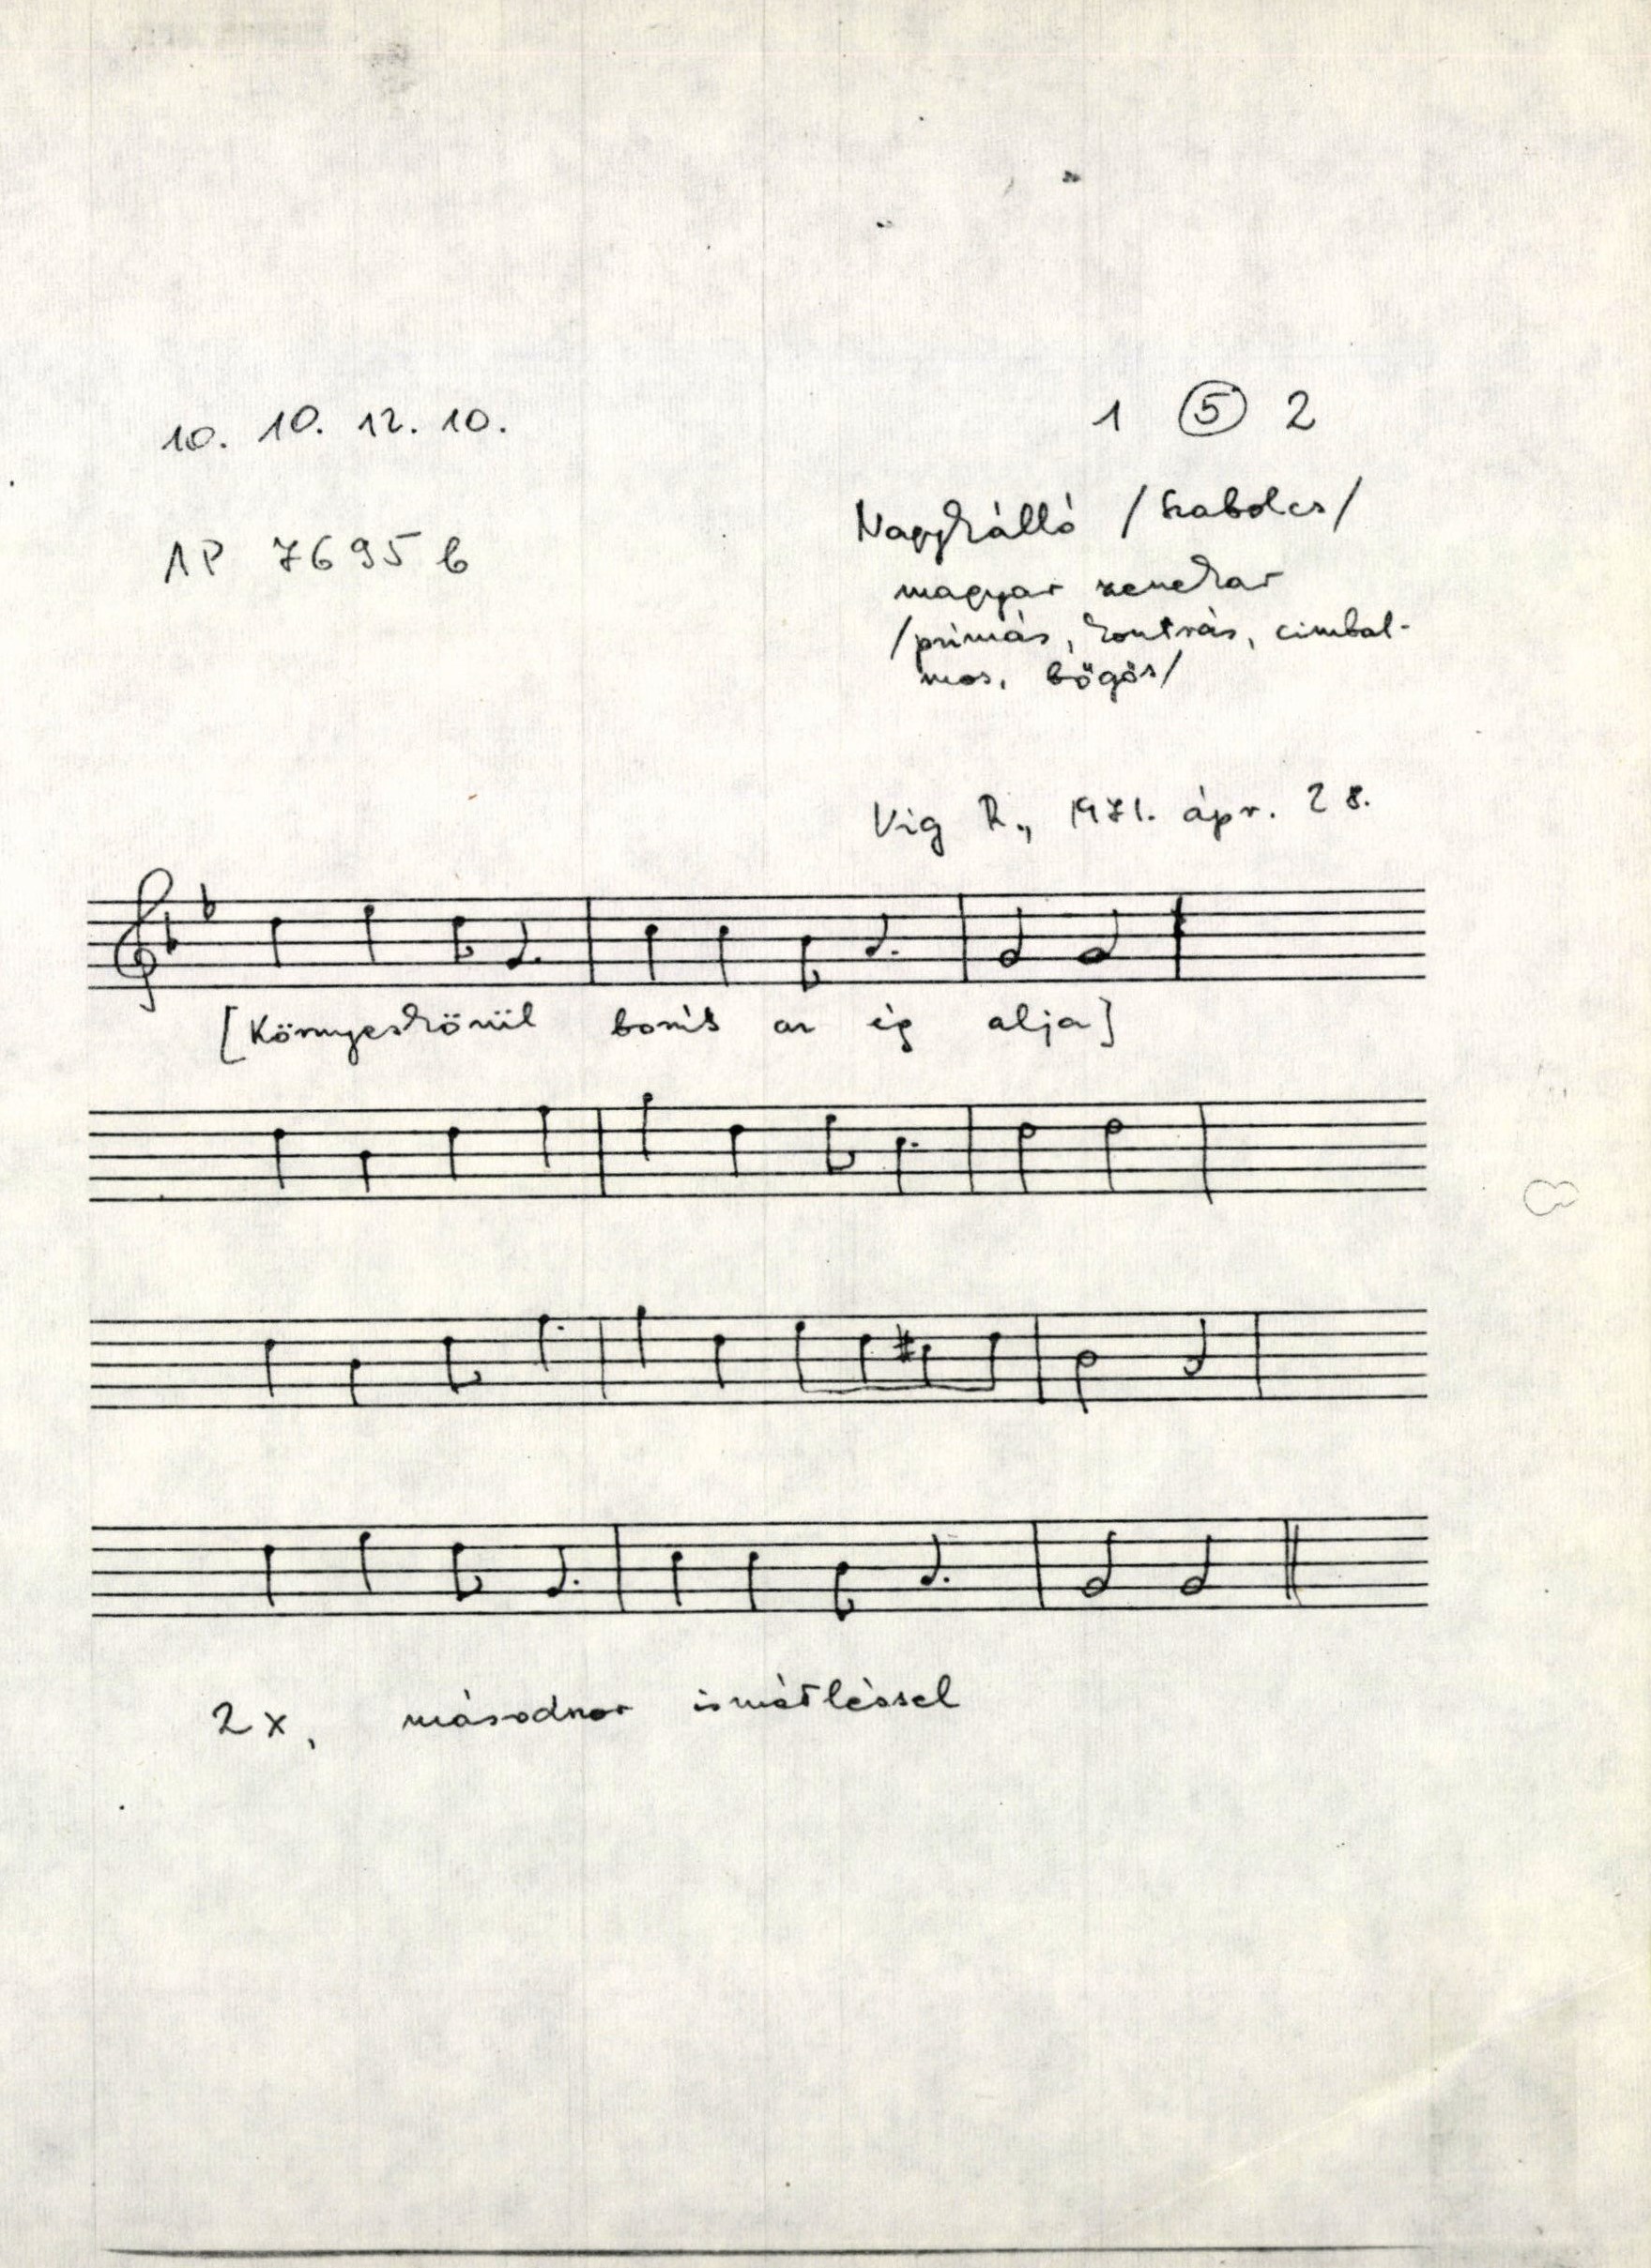 10. 10. 12. 10.
1 5 2
AP 7695 b
Nagykálló /Szabolcs/
magyar zenekar
/prímás, kontrás, cimbal-
mos, bőgős/
Vig R., 1971. ápr. 28.
[Környeskörül borít az ég alja]
2x, másodszor ismétléssel